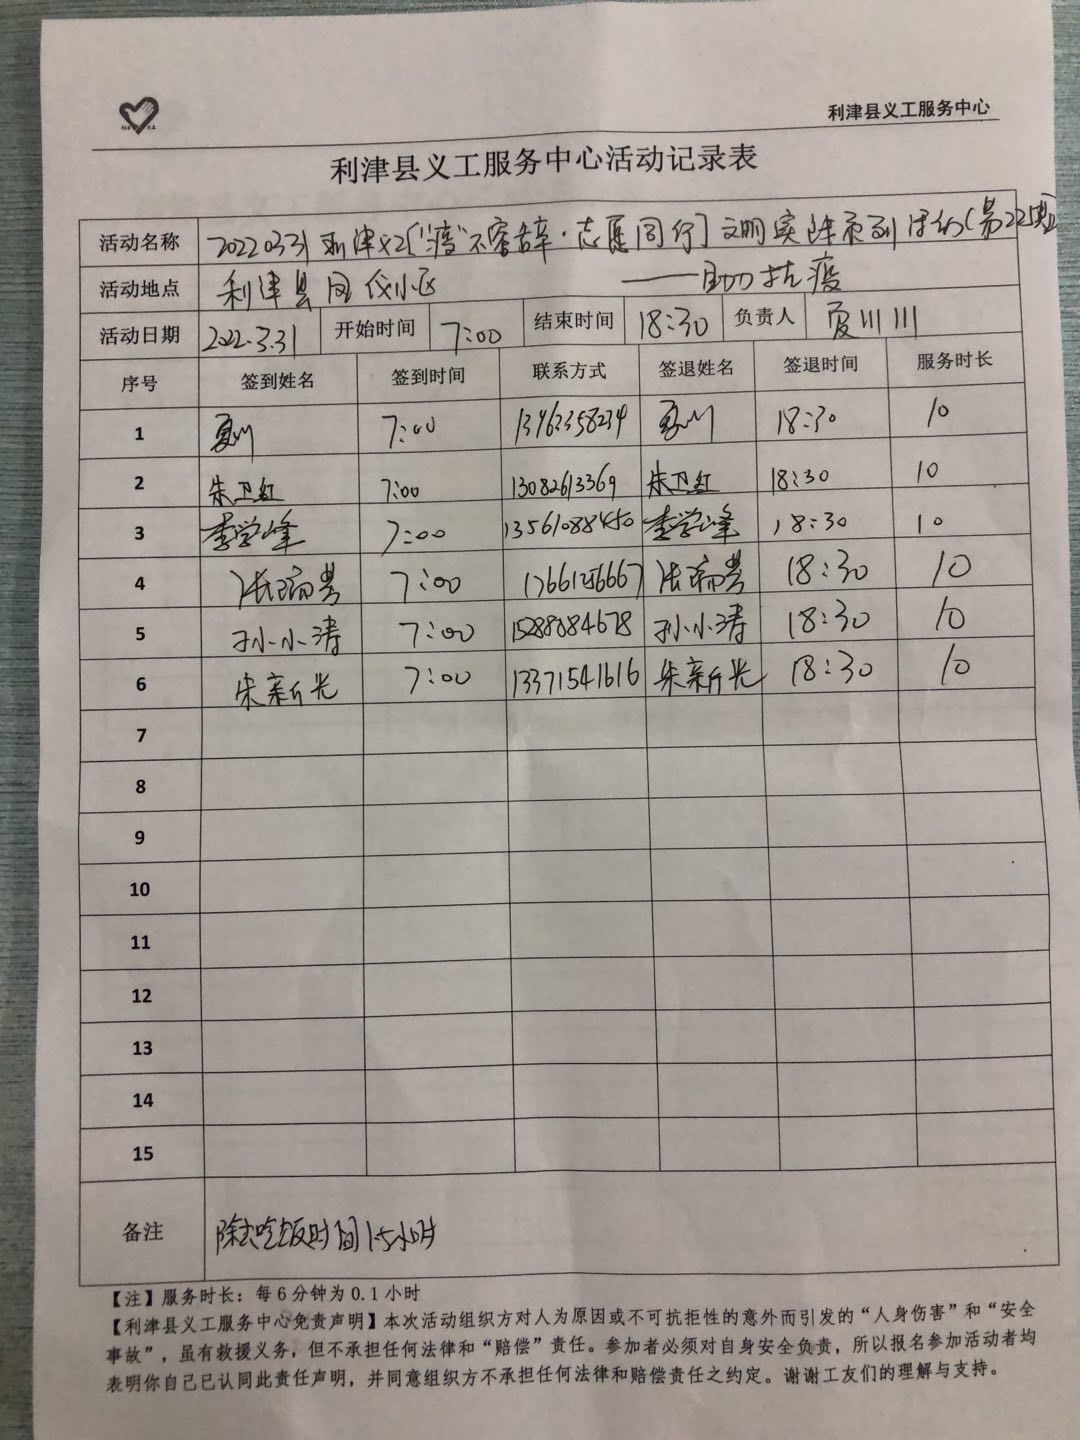 利津县义工服务中心
利津县义工服务中心活动记录表
活动名称 20220331利津义工["疫"不容辞·志愿同行]文明实践系列活动(第225期)
活动地点 利津县凤仪小区 ——助力抗疫
活动日期 2022.3.31 开始时间 7:00 结束时间 18:30 负责人 夏川川
序号 签到姓名 签到时间 联系方式 签退姓名 签退时间 服务时长
1 7:00 18:30 10
2 朱卫红 7:00 13082613369 朱卫红 18:30 10
3 李学峰 7:00 13561088450 李学峰 18:30 10
4 7:00 18:30 10
5 孙小涛 7:00 孙小涛 18:30 10
6 朱新光 7:00 13371541616 朱新光 18:30 10
7
8
9
10
11
12
13
14
15
备注 除去吃饭时间1.5小时
【注】服务时长：每6分钟为0.1小时
【利津县义工服务中心免责声明】本次活动组织方对人为原因或不可抗拒性的意外而引发的“人身伤害”和“安全
事故”，虽有救援义务，但不承担任何法律和“赔偿”责任。参加者必须对自身安全负责，所以报名参加活动者均
表明你自己已认同此责任声明，并同意组织方不承担任何法律和赔偿责任之约定。谢谢工友们的理解与支持。